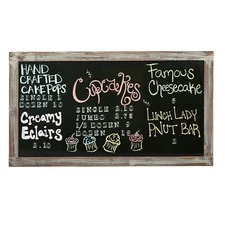 HAND
CRAFTED
CAKE POPS
SINGLE 1
DOZEN 10
Creamy
Eclairs
$.10
Cupcakes
SINGLE $.10
JUMBO $.75
1/2 DOZEN 9
DOZEN 18
Famous
Cheesecake
$
LUNCH LADY
PNUT BAR
$